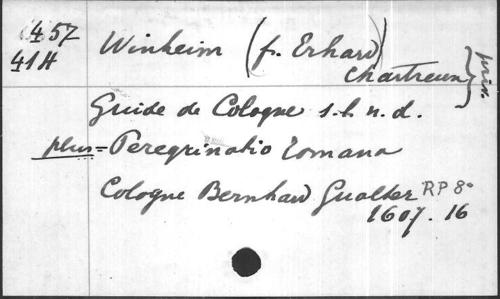 457 Winheim (f. Erhard)
41H chartreux
Guide de Cologne s.l. n.d.
plus = Peregrinatio romana
Cologne Bernhard Gualter RP 8°
1607. 16